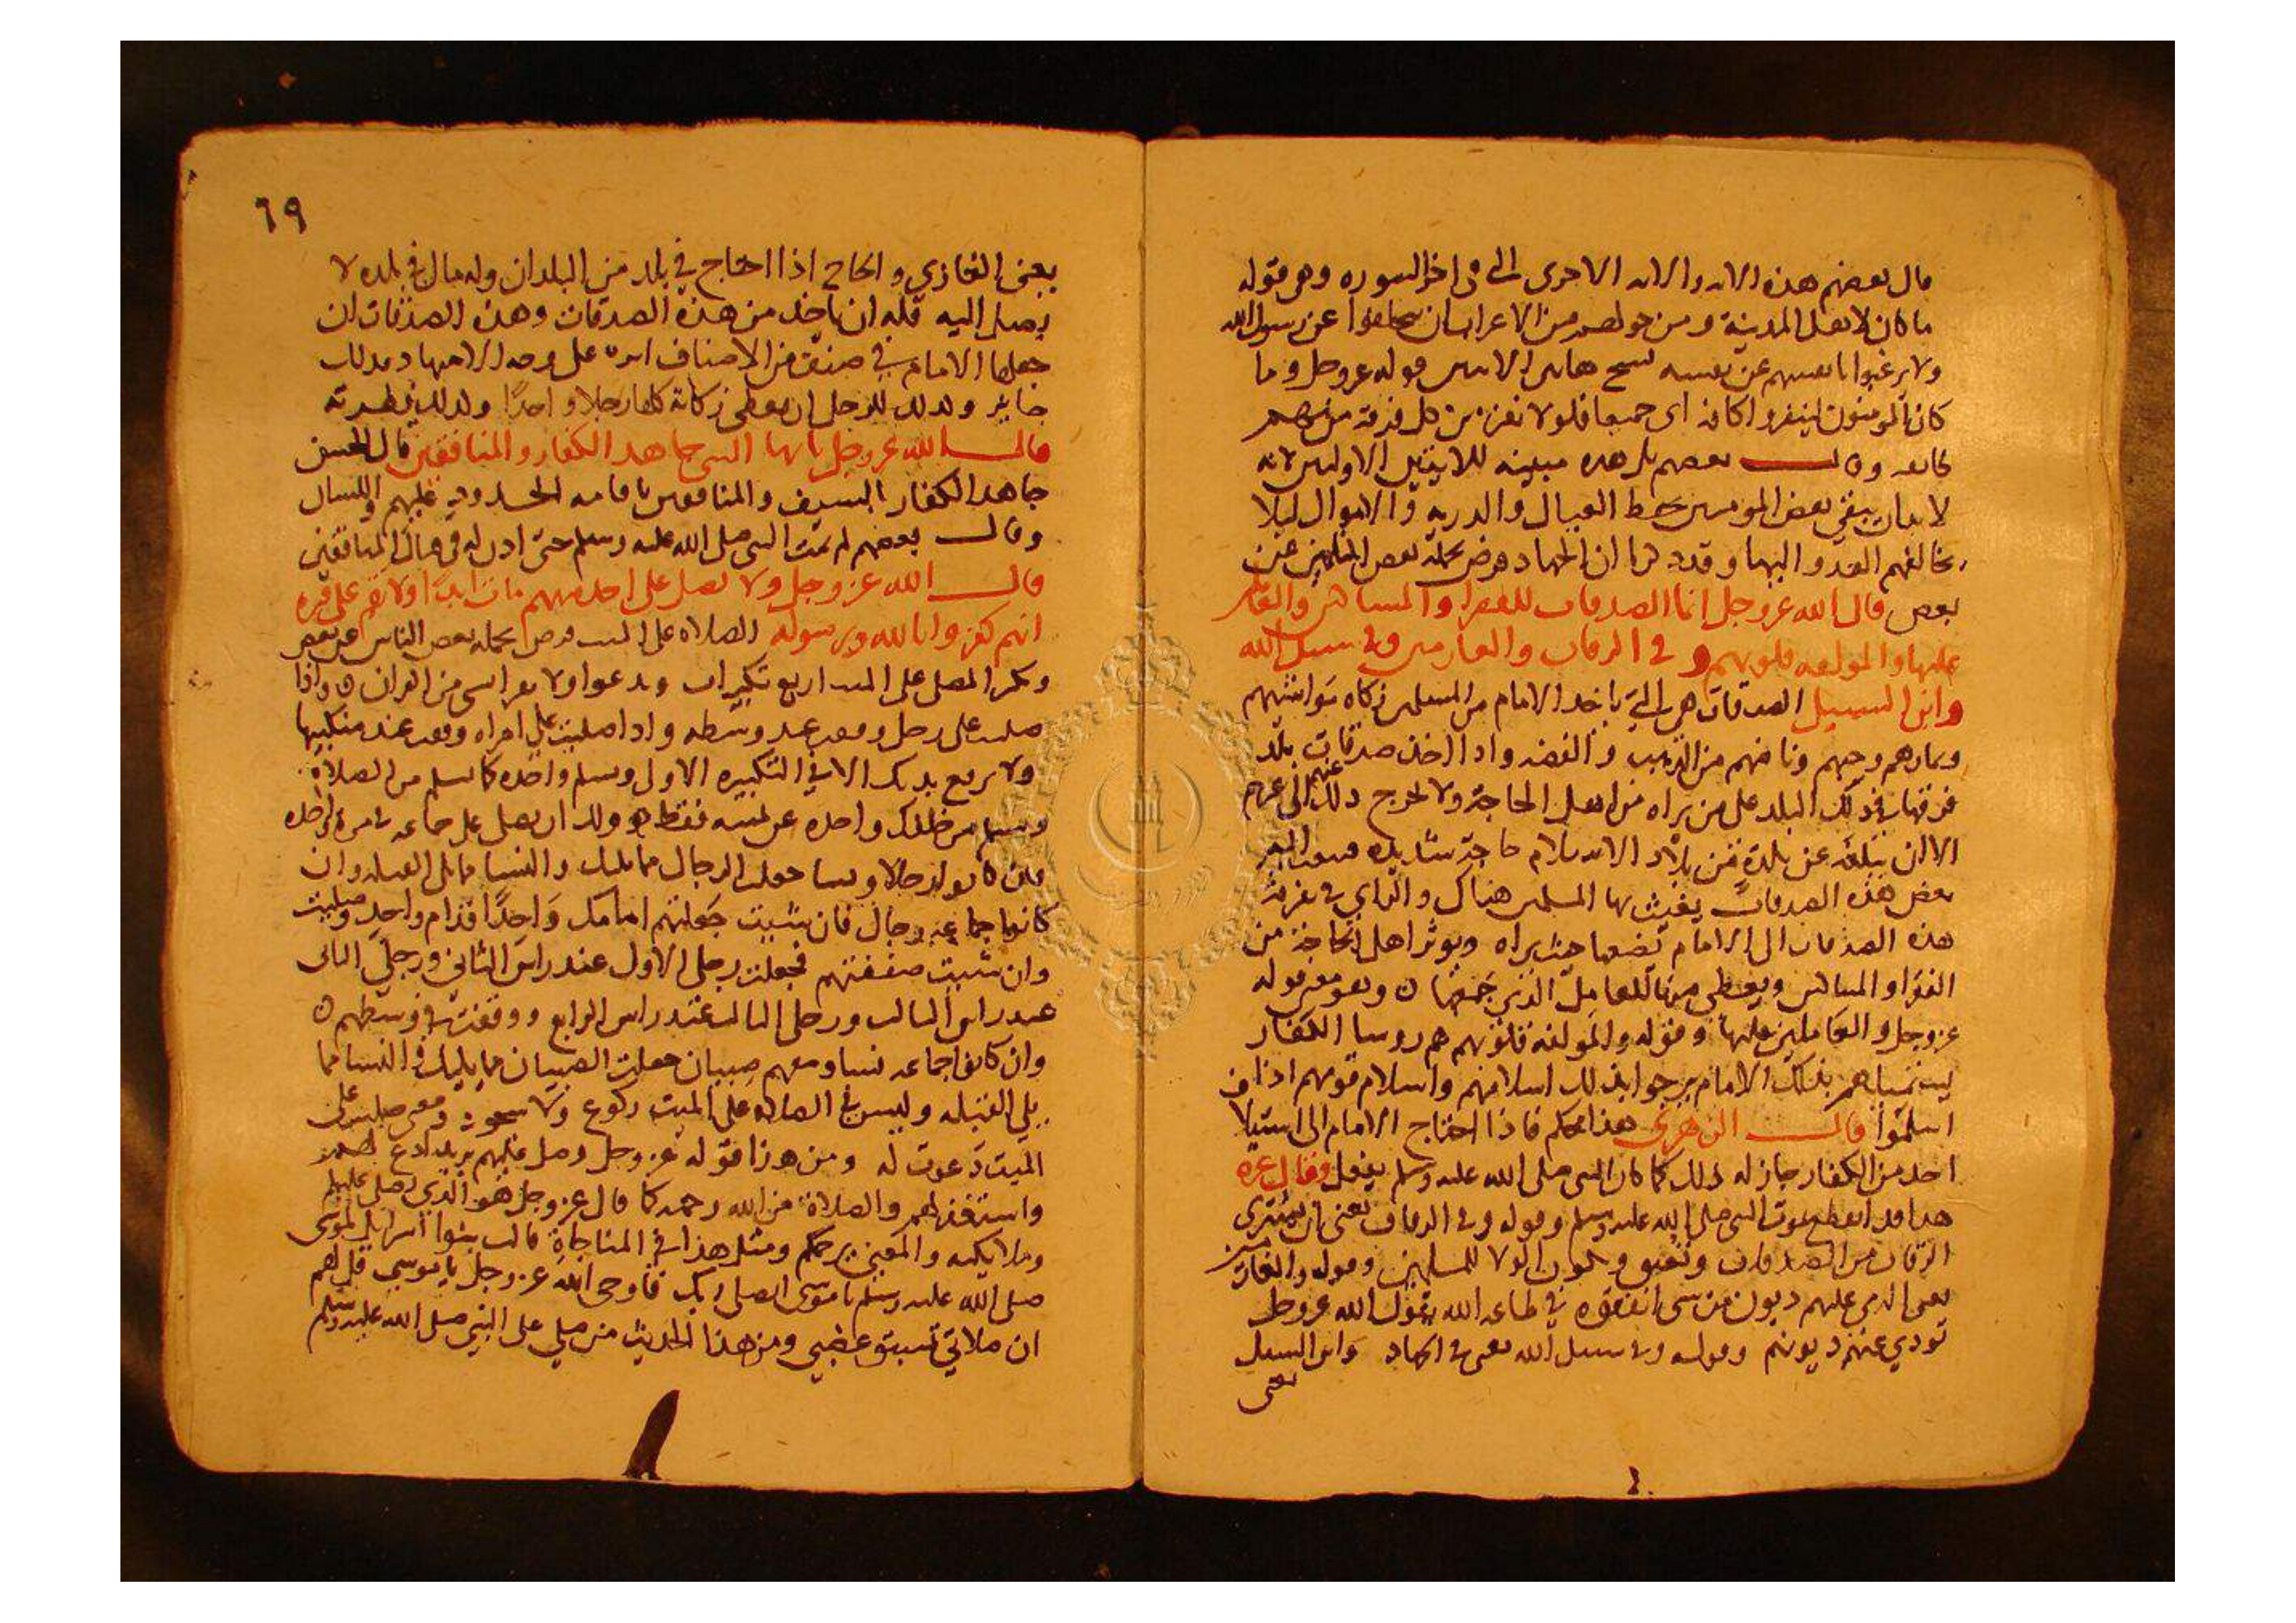 قال بعضهم هذه الايه والايه الاخرى التي في اخر السوره وهي قوله
ما كان لاهل المدينة ومن حولهم من الاعراب ان يتخلفوا عن رسول الله
ولا يرغبوا بانفسهم عن نفسه نسخ هاتين الايتين قوله عز وجل وما
كان المومنون لينفروا كافه اي جميعا فلولا نفر من كل فرقة منهم
طايفه وقال بعضهم بل هذه مبينه للايتين الاوليين لانه
لا بد ان يبقى بعض المومنين لحفظ العيال والذريه والاموال ليلا
يخالفهم العدو اليها وقد ذكرنا ان الجهاد فرض يحمله بعض الناس عن
بعض قال الله عز وجل انما الصدقات للفقرا والمساكين والعاملين
عليها والمولفه قلوبهم وفي الرقاب والغارمين وفي سبيل الله
وابن السبيل الصدقات هي التي ياخذ الامام من المسلمين زكاه مواشيهم
وثمارهم وحبهم وناضهم من الذهب والفضه واذا اخذ صدقات بلد
فرقها في ذلك البلد على من يراه من اهل الحاجة ولا يخرج ذلك عنهم الى غيرهم
الا ان يبلغه عن بلدة من بلاد الاسلام حاجة شديده فينقل اليهم
بعض هذه الصدقات يغيث بها المسلمين هناك والراي في تفرقة
هذه الصدقات الى الامام يضعها حيث يراه ويوثر اهل الحاجة من
الفقرا والمساكين ويعطي منها للعامل الذي جمعها وهو معنى قوله
عز وجل والعاملين عليها وقوله والمولفه قلوبهم هم روسا الكفار
يستميلهم بذلك الامام يرجوا بذلك اسلامهم واسلام قومهم اذا هم
اسلموا قال الزهري هذا محكم فاذا احتاج الامام الى استيلا
احد من الكفار جاز له ذلك كما كان النبي صلى الله عليه وسلم يفعل وقال غيره
هذا قد انقطع بموت النبي صلى الله عليه وسلم وقوله وفي الرقاب يعني ان يشتري
الرقاب من الصدقات وتعتق ويكون الولا للمسلمين وقوله والغارمين
يعني الذي عليهم ديون من شي انفقوه في طاعه الله يقول الله عز وجل
تودي عنهم ديونهم وقوله وفي سبيل الله يعني في الجهاد وابن السبيل
يعني
٦٩
يعني الغازي والحاج اذا احتاج في بلد من البلدان وله مال في بلده لا
يصل اليه فله ان ياخذ من هذه الصدقات وهذه الصدقات ان
جعلها الامام في صنف من الاصناف على وجه الاجتهاد فذلك
جايز وكذلك للرجل ان يعطي زكاته كلها رجلا واحدا وكذلك فطرته
قال الله عز وجل يايها النبي جاهد الكفار والمنافقين قال الحسن
جاهد الكفار بالسيف والمنافقين باقامه الحدود عليهم واللسان
وقال بعضهم لم يمت النبي صلى الله عليه وسلم حتى اذن له في قتال المنافقين
قال الله عز وجل ولا تصل على احد منهم مات ابدا ولا تقم على قبره
انهم كفروا بالله ورسوله الصلاه على الميت فرض يحمله بعض الناس عن بعض
ويكبر المصلي على الميت اربع تكبيرات ويدعوا ولا يقرا شي من القران واذا
صليت على رجل وقفت عند وسطه واذا صليت على امراه وقفت عند منكبيها
ولا ترفع يديك الا في التكبيره الاولى وسلم واحده كما تسلم من الصلاة
ويسلم من خلفك واحده عن يمينه فقط ولك ان تصلي على جماعه في مرة واحده
فان كانوا رجالا ونسا جعلت الرجال مما يليك والنسا مما يلي القبله وان
كانوا جماعه رجال فان شيت جعلتهم امامك واحدا قدام واحد وصليت
وان شيت صففتهم فجعلت رجلي الاول عند راس الثاني ورجلي الثاني
عند راس الثالث ورجلي الثالث عند راس الرابع ووقفت في وسطهم
وان كانوا جماعه نسا ومعهم صبيان جعلت الصبيان مما يليك والنسا مما
يلي القبله وليس في الصلاه على الميت ركوع ولا سجود ومعنى صليت على
الميت دعوت له ومن هذا قوله عز وجل وصل عليهم يريد ادع لهم
واستغفر لهم والصلاة من الله رحمه كما قال عز وجل هو الذي يصلي عليكم
وملايكته والمعنى يرحمكم ومثل هذا في المناجاة قالت بنوا اسراييل لموسى
صلى الله عليه وسلم يا موسى ايصلي ربك فاوحى الله عز وجل يا موسى قل لهم
ان صلاتي تسبق غضبي ومن هذا الحديث من صلى على النبي صلى الله عليه وسلم